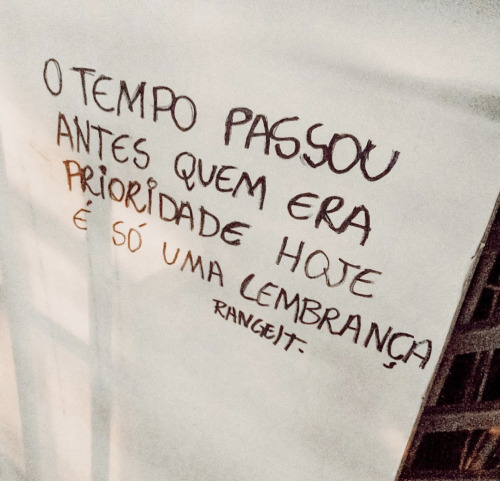 O TEMPO PASSOU
ANTES QUEM ERA
PRIORIDADE HOJE
É SÓ UMA LEMBRANÇA
RANGEIT.